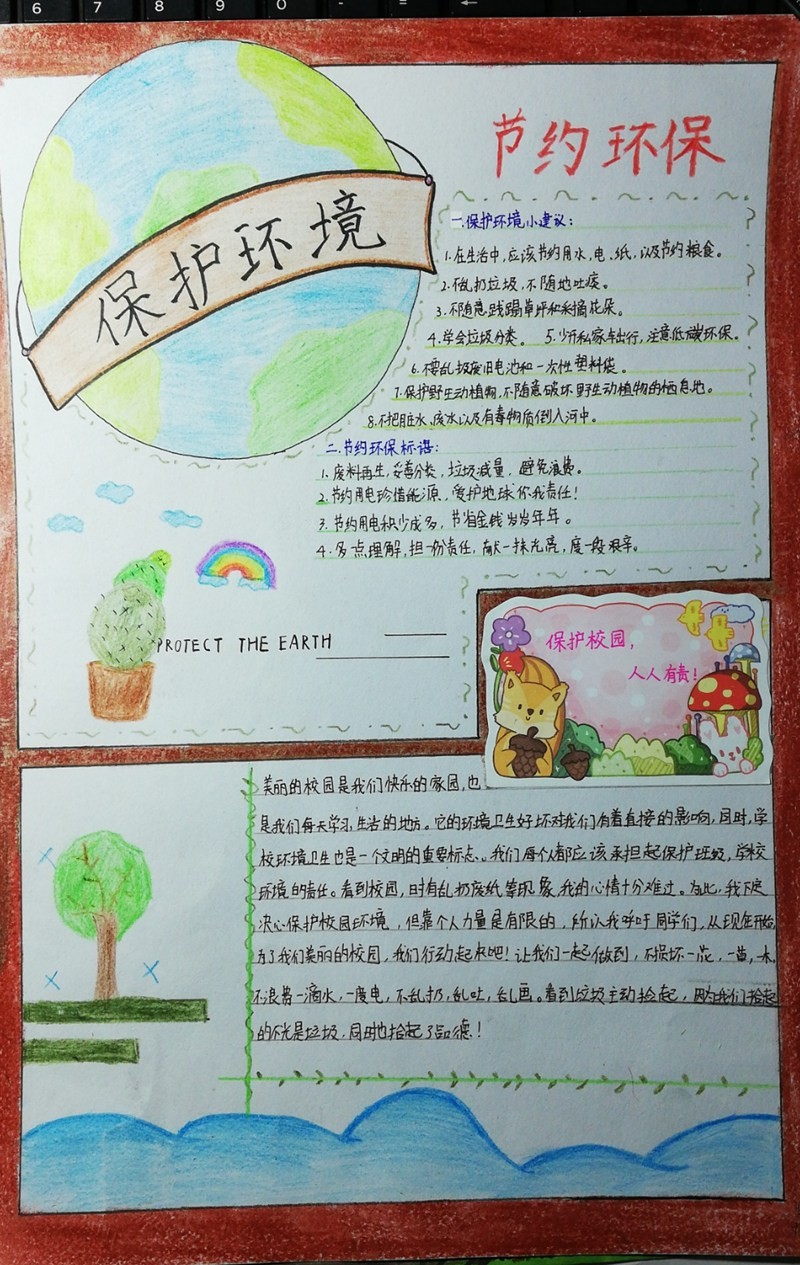 6 7 8 9 0 - = ←
保护环境
节约环保
一.保护环境小建议:
1.在生活中,应该节约用水,电、纸,以及节约粮食。
2.不乱扔垃圾,不随地吐痰。
3.不随意践踏草坪和采摘花朵。
4.学会垃圾分类。 5.少开私家车出行,注意低碳环保。
6.不要乱扔废旧电池和一次性塑料袋。
7.保护野生动植物,不随意破坏野生动植物的栖息地。
8.不把脏水、废水以及有毒物质倒入河中。
二.节约环保标语:
1.废料再生,妥善分类,垃圾减量,避免浪费。
2.节约用电珍惜能源,爱护地球你我责任!
3.节约用电积少成多,节省金钱岁岁年年。
4.多一点理解,担一份责任,献一抹光亮,度一段艰辛。
PROTECT THE EARTH
保护校园,
人人有责!
美丽的校园是我们快乐的家园,也
是我们每天学习,生活的地方。它的环境卫生好坏对我们有着直接的影响,同时,学
校环境卫生也是一个文明的重要标志。我们每个人都应该承担起保护班级,学校
环境的责任。看到校园,时有乱扔废纸等现象,我的心情十分难过。为此,我下定
决心保护校园环境,但靠个人力量是有限的,所以我呼吁同学们,从现在开始,
为了我们美丽的校园,我们行动起来吧!让我们一起做到,不损坏一花,一苗,一木,
不浪费一滴水,一度电,不乱扔,乱吐,乱画。看到垃圾主动捡起,因为我们捡起
的不光是垃圾,同时也拾起了品德!